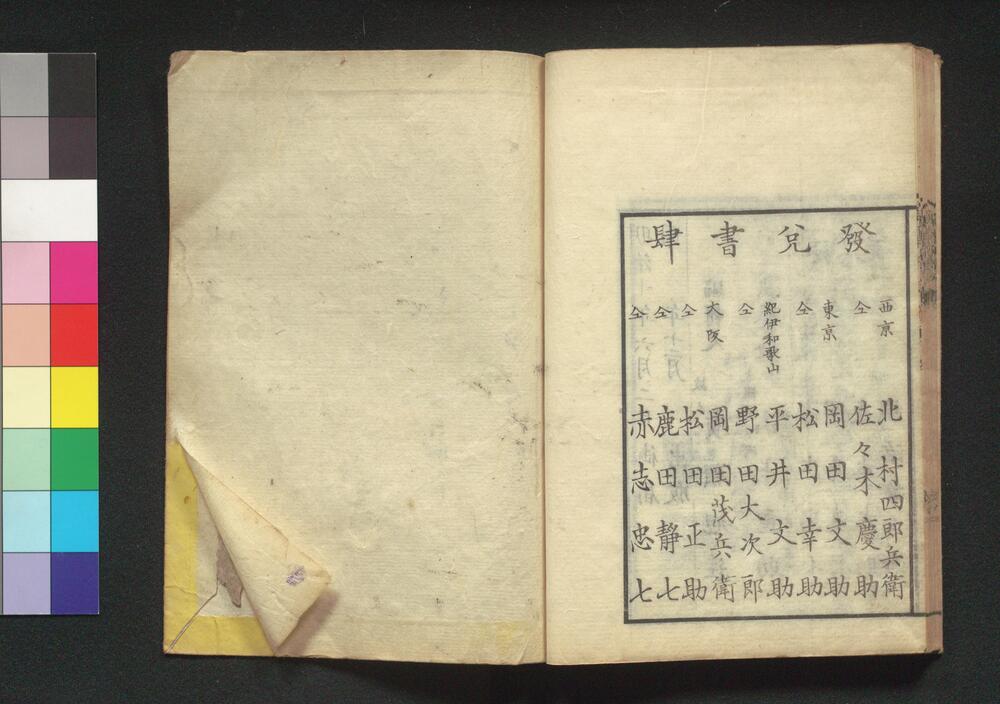 發兌書肆
西京 北村四郎兵衛
仝 佐々木慶助
東京 岡田文助
仝 松田幸助
紀伊和歌山 平井文助
仝 野田大次郎
大阪 岡田茂兵衛
仝 松田正助
仝 鹿田靜七
仝 赤志忠七